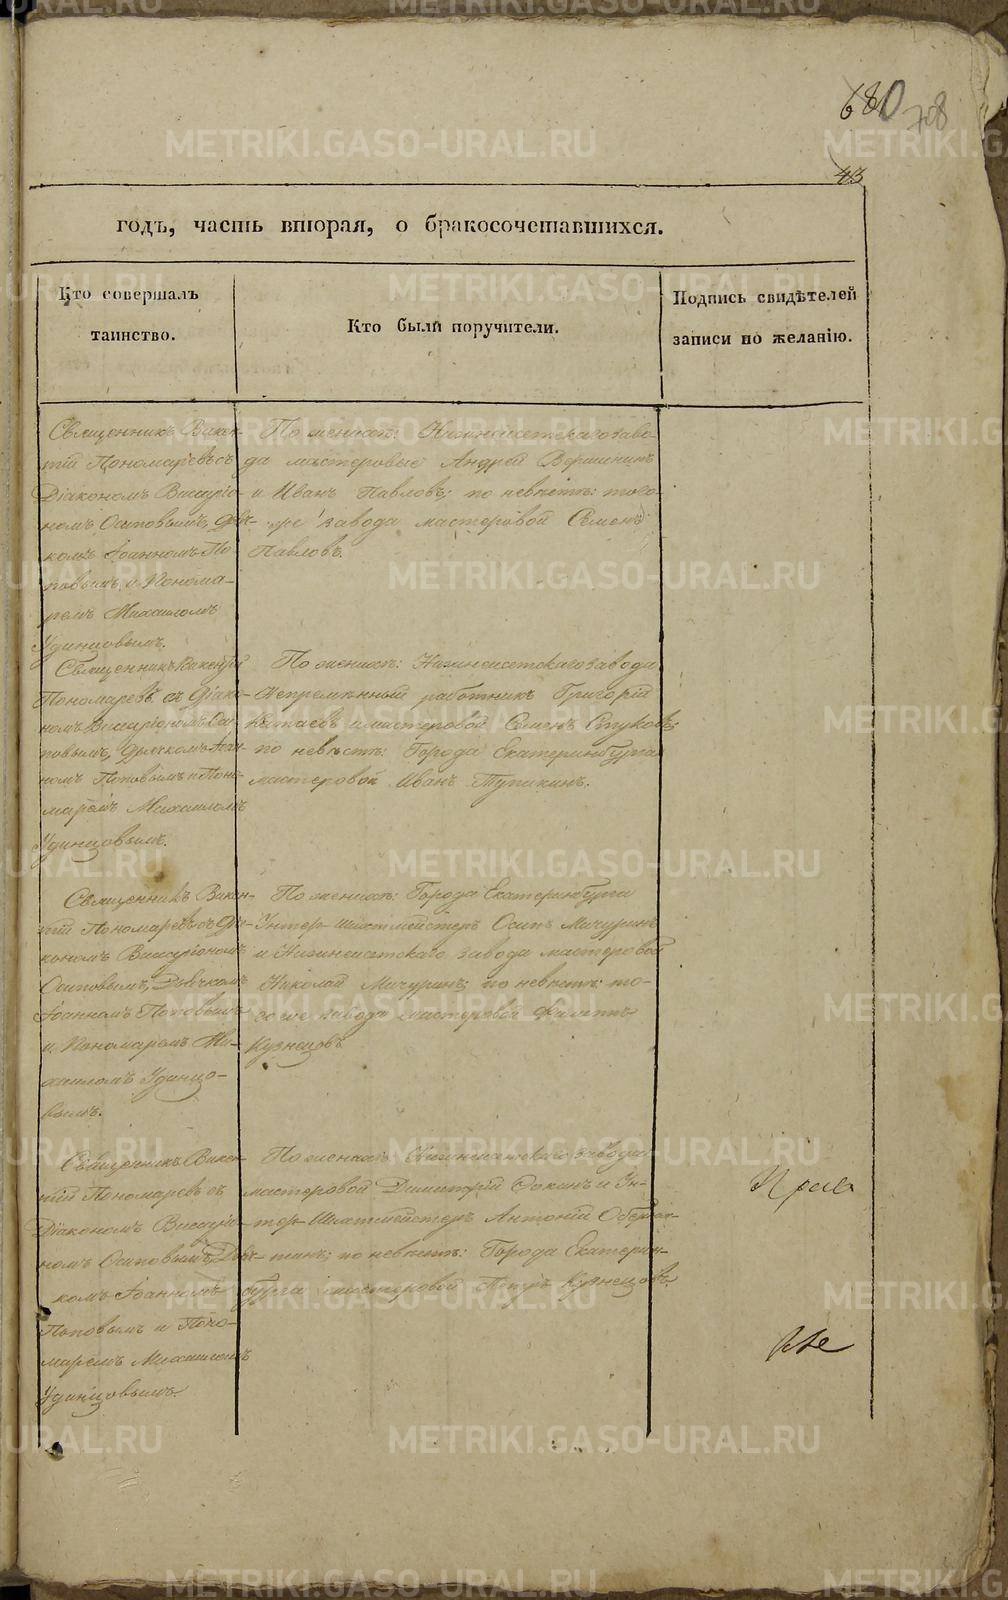 680 708
43
годъ, часть вторая, о бракосочетавшихся.
Кто совершалъ
таинство.
Кто были поручители.
Подпись свидѣтелей
записи по желанію.
Священникъ Викен-
тій Пономаревъ съ
Діакономъ Виссаріо-
номъ Осиповымъ, Дья-
комъ Іоанномъ По-
повымъ и Понома-
ремъ Михаиломъ
Удинцовымъ.
По женихѣ: Нижнеисетскаго заво-
да мастеровые Андрей Вершининъ
и Иванъ Павловъ; по невѣстѣ: того-
же завода мастеровой Семенъ
Павловъ.
Священникъ Викентій
Пономаревъ съ Діако-
номъ Виссаріономъ Оси-
повымъ, Дьячкомъ Іоан-
номъ Поповымъ и Поно-
маремъ Михаиломъ
Удинцовымъ.
По женихѣ: Нижнеисетскаго завода
Непремѣнный работникъ Григорій
Китаевъ и мастеровой Семенъ Стуковъ;
по невѣстѣ: Города Екатеринбурга
мастеровой Иванъ Тупикинъ.
Священникъ Викен-
тій Пономаревъ съ Діа-
кономъ Виссаріономъ
Осиповымъ, Дьячкомъ
Іоанномъ Поповымъ
и Пономаремъ Ми-
хаиломъ Удинцо-
вымъ.
По женихѣ: Города Екатеринбурга
Унтер-шихтмейстеръ Осипъ Мичуринъ
и Нижнеисетскаго завода мастеровой
Николай Мичуринъ; по невѣстѣ: то-
гоже завода мастеровой Филиппъ
Кузнецовъ.
Священникъ Викен-
тій Пономаревъ съ
Діакономъ Виссаріо-
номъ Осиповымъ, Дья-
комъ Іоанномъ
Поповымъ и Поно-
маремъ Михаиломъ
Удинцовымъ.
По женихѣ: Нижнеисетскаго завода
мастеровой Димитрій и Ун-
тер-Шихтмейстеръ Антоній
по невѣстѣ: Города Екатерин-
бурга мастеровой Петръ Кузнецовъ.
METRIKI.GASO-URAL.RU